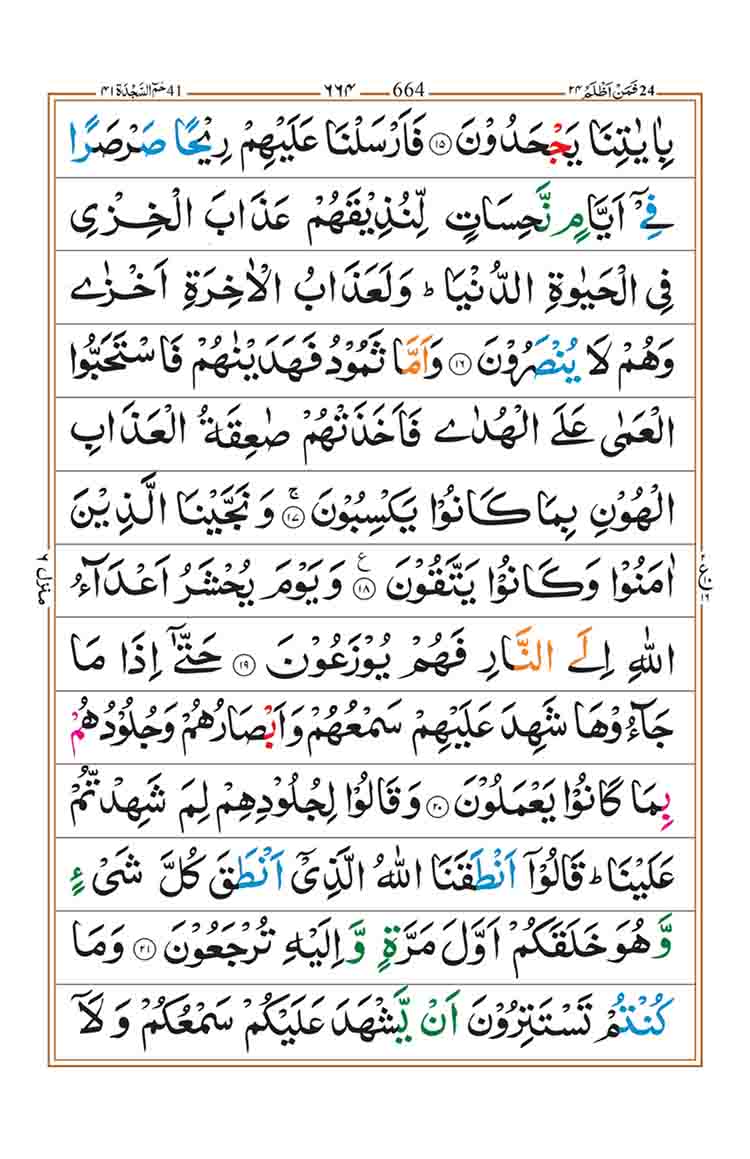 24 فَمَنْ اَظْلَمُ ۲۴ 664 ۶۶۴ 41 حٰمٓ السَّجْدَة ۴۱
بِاٰيٰتِنَا يَجْحَدُوْنَ ۝۱۵ فَاَرْسَلْنَا عَلَيْهِمْ رِيْحًا صَرْصَرًا
فِيْۤ اَيَّامٍ نَّحِسَاتٍ لِّنُذِيْقَهُمْ عَذَابَ الْخِزْيِ
فِي الْحَيٰوةِ الدُّنْيَا ؕ وَلَعَذَابُ الْاٰخِرَةِ اَخْزٰى
وَهُمْ لَا يُنْصَرُوْنَ ۝۱۶ وَاَمَّا ثَمُوْدُ فَهَدَيْنٰهُمْ فَاسْتَحَبُّوا
الْعَمٰى عَلَى الْهُدٰى فَاَخَذَتْهُمْ صٰعِقَةُ الْعَذَابِ
الْهُوْنِ بِمَا كَانُوْا يَكْسِبُوْنَ ۝۱۷ۚ وَنَجَّيْنَا الَّذِيْنَ
اٰمَنُوْا وَكَانُوْا يَتَّقُوْنَ ۝۱۸ ع وَيَوْمَ يُحْشَرُ اَعْدَآءُ
اللّٰهِ اِلَى النَّارِ فَهُمْ يُوْزَعُوْنَ ۝۱۹ حَتّٰۤى اِذَا مَا
جَآءُوْهَا شَهِدَ عَلَيْهِمْ سَمْعُهُمْ وَاَبْصَارُهُمْ وَجُلُوْدُهُمْ
بِمَا كَانُوْا يَعْمَلُوْنَ ۝۲۰ وَقَالُوْا لِجُلُوْدِهِمْ لِمَ شَهِدْتُّمْ
عَلَيْنَا ؕ قَالُوْۤا اَنْطَقَنَا اللّٰهُ الَّذِيْۤ اَنْطَقَ كُلَّ شَيْءٍ
وَّهُوَ خَلَقَكُمْ اَوَّلَ مَرَّةٍ وَّاِلَيْهِ تُرْجَعُوْنَ ۝۲۱ وَمَا
كُنْتُمْ تَسْتَتِرُوْنَ اَنْ يَّشْهَدَ عَلَيْكُمْ سَمْعُكُمْ وَلَاۤ
منزل ۶